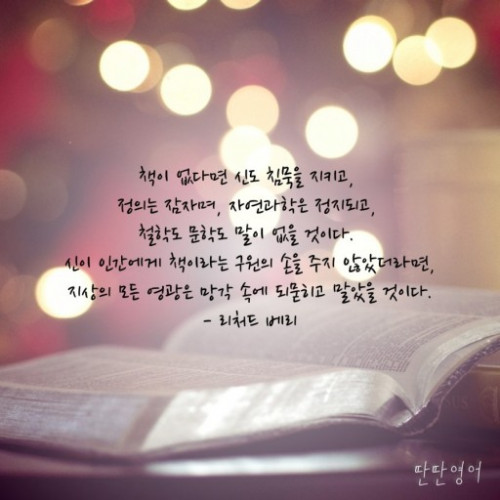 책이 없다면 신도 침묵을 지키고,
정의는 잠자며, 자연과학은 정지되고,
철학도 문학도 말이 없을 것이다.
신이 인간에게 책이라는 구원의 손을 주지 않았더라면,
지상의 모든 영광은 망각 속에 되묻히고 말았을 것이다.
- 리처드 베리
딴딴영어